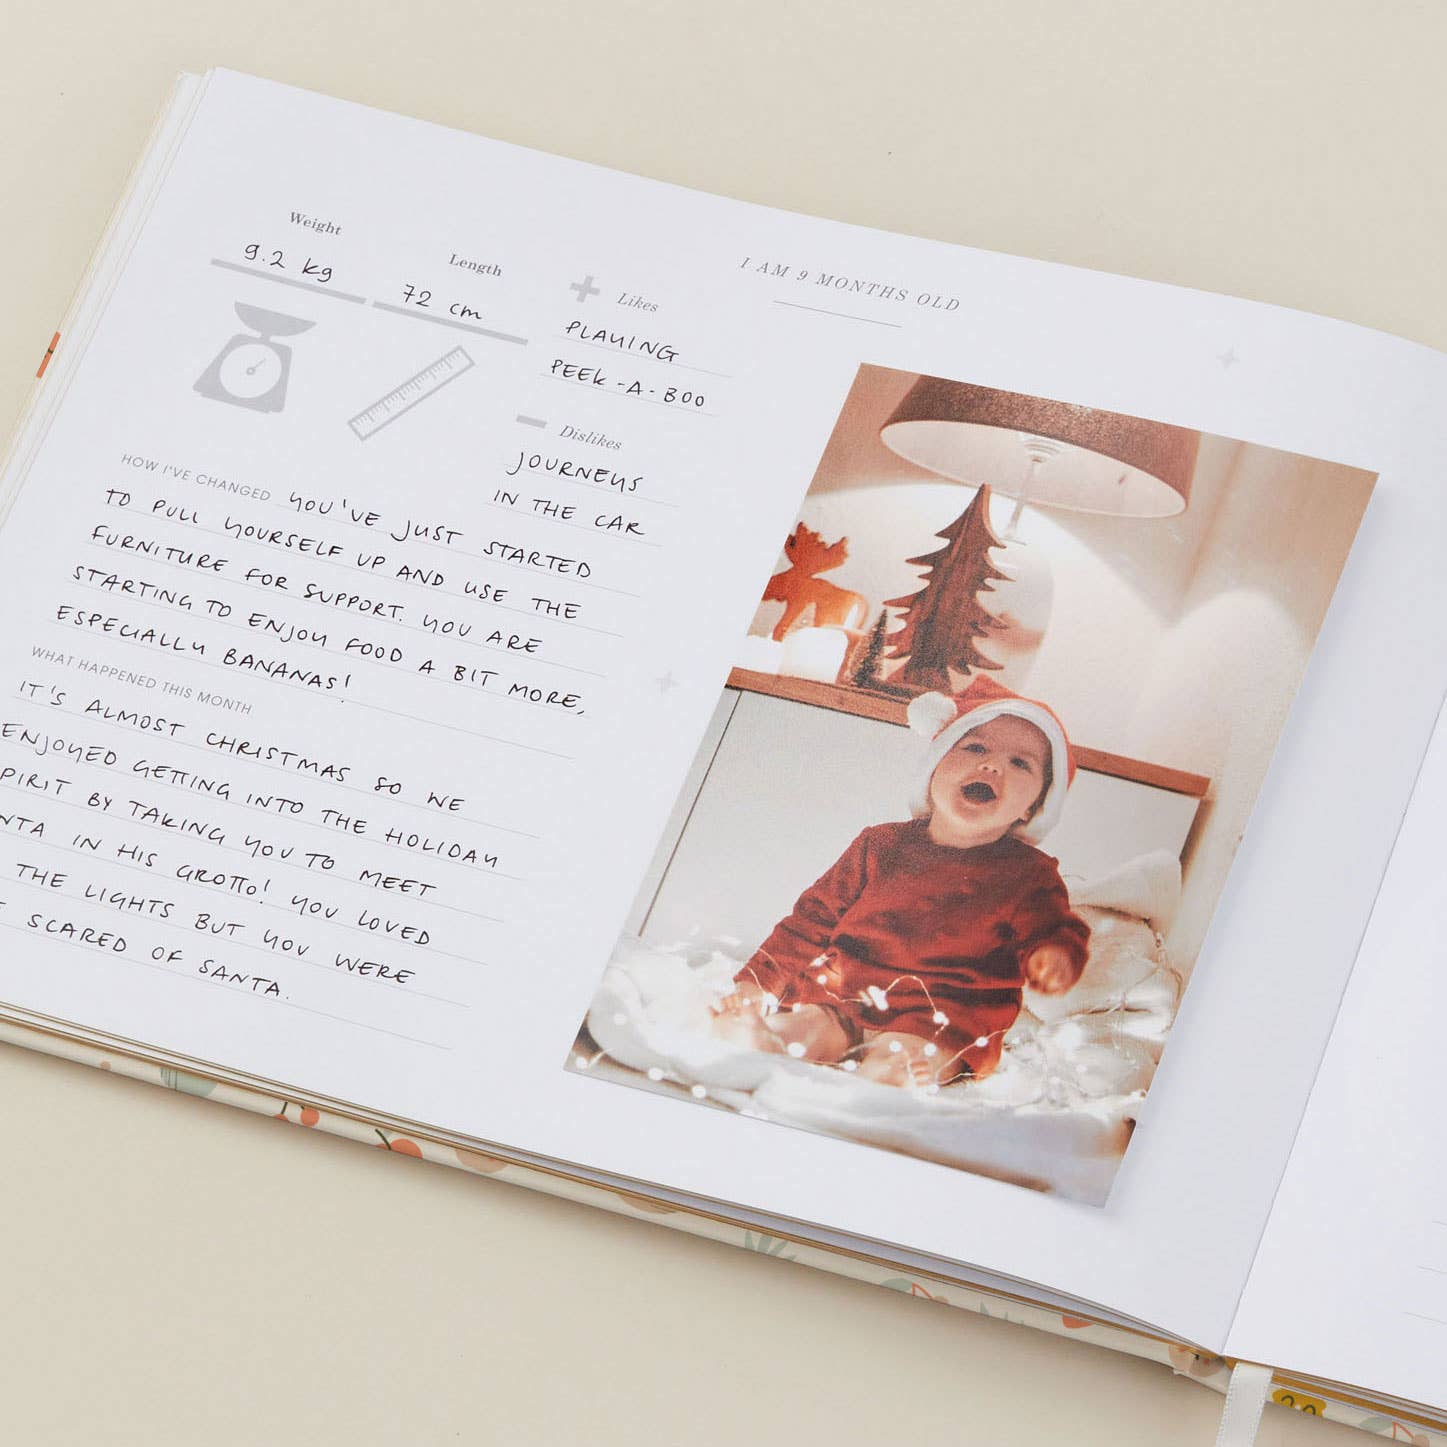 Weight
9.2 kg
Length
72 cm
Likes
PLAYING
PEEK-A-BOO
Dislikes
JOURNEYS
IN THE CAR
I AM 9 MONTHS OLD
HOW I'VE CHANGED YOU'VE JUST STARTED
TO PULL YOURSELF UP AND USE THE
FURNITURE FOR SUPPORT. YOU ARE
STARTING TO ENJOY FOOD A BIT MORE,
ESPECIALLY BANANAS!
WHAT HAPPENED THIS MONTH
IT'S ALMOST CHRISTMAS SO WE
ENJOYED GETTING INTO THE HOLIDAY
PIRIT BY TAKING YOU TO MEET
NTA IN HIS GROTTO! YOU LOVED
THE LIGHTS BUT YOU WERE
SCARED OF SANTA.